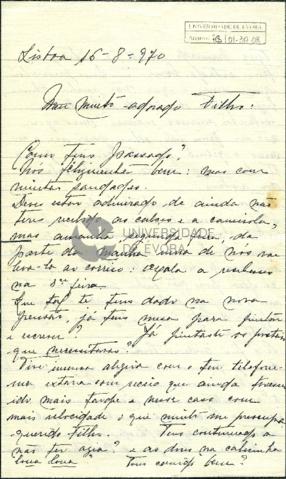 UNIVERSIDADE DE ÉVORA
Lisboa 16-8-970
Meu muito adorado Filho:
Como tens passado?
Nós felizmente bem: mas com
muitas saudades.
Deves estar admirado de ainda não
teres recebido as calças e a camisola,
mas amanhã segunda feira, da
parte da manhã uma de nós vai
levá-la ao correio:
na 3ª feira
Que tal te tens dado na nova
pensão, já tens mesa para
e escrever? Já
que necessitavas.
Tive imensa alegria com o teu telefone-
ma estava com receio que
ido mais longe e nesse caso com
mais velocidade o que muito me preocupa
querido Filho. Tens continuado a
não ter agua? e as dores na cabecinha
boua boua Tens comido bem?
UNIVERSIDADE
DE ÉVORA